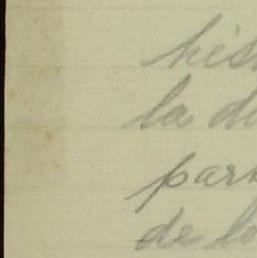 his
la d
par
de lo